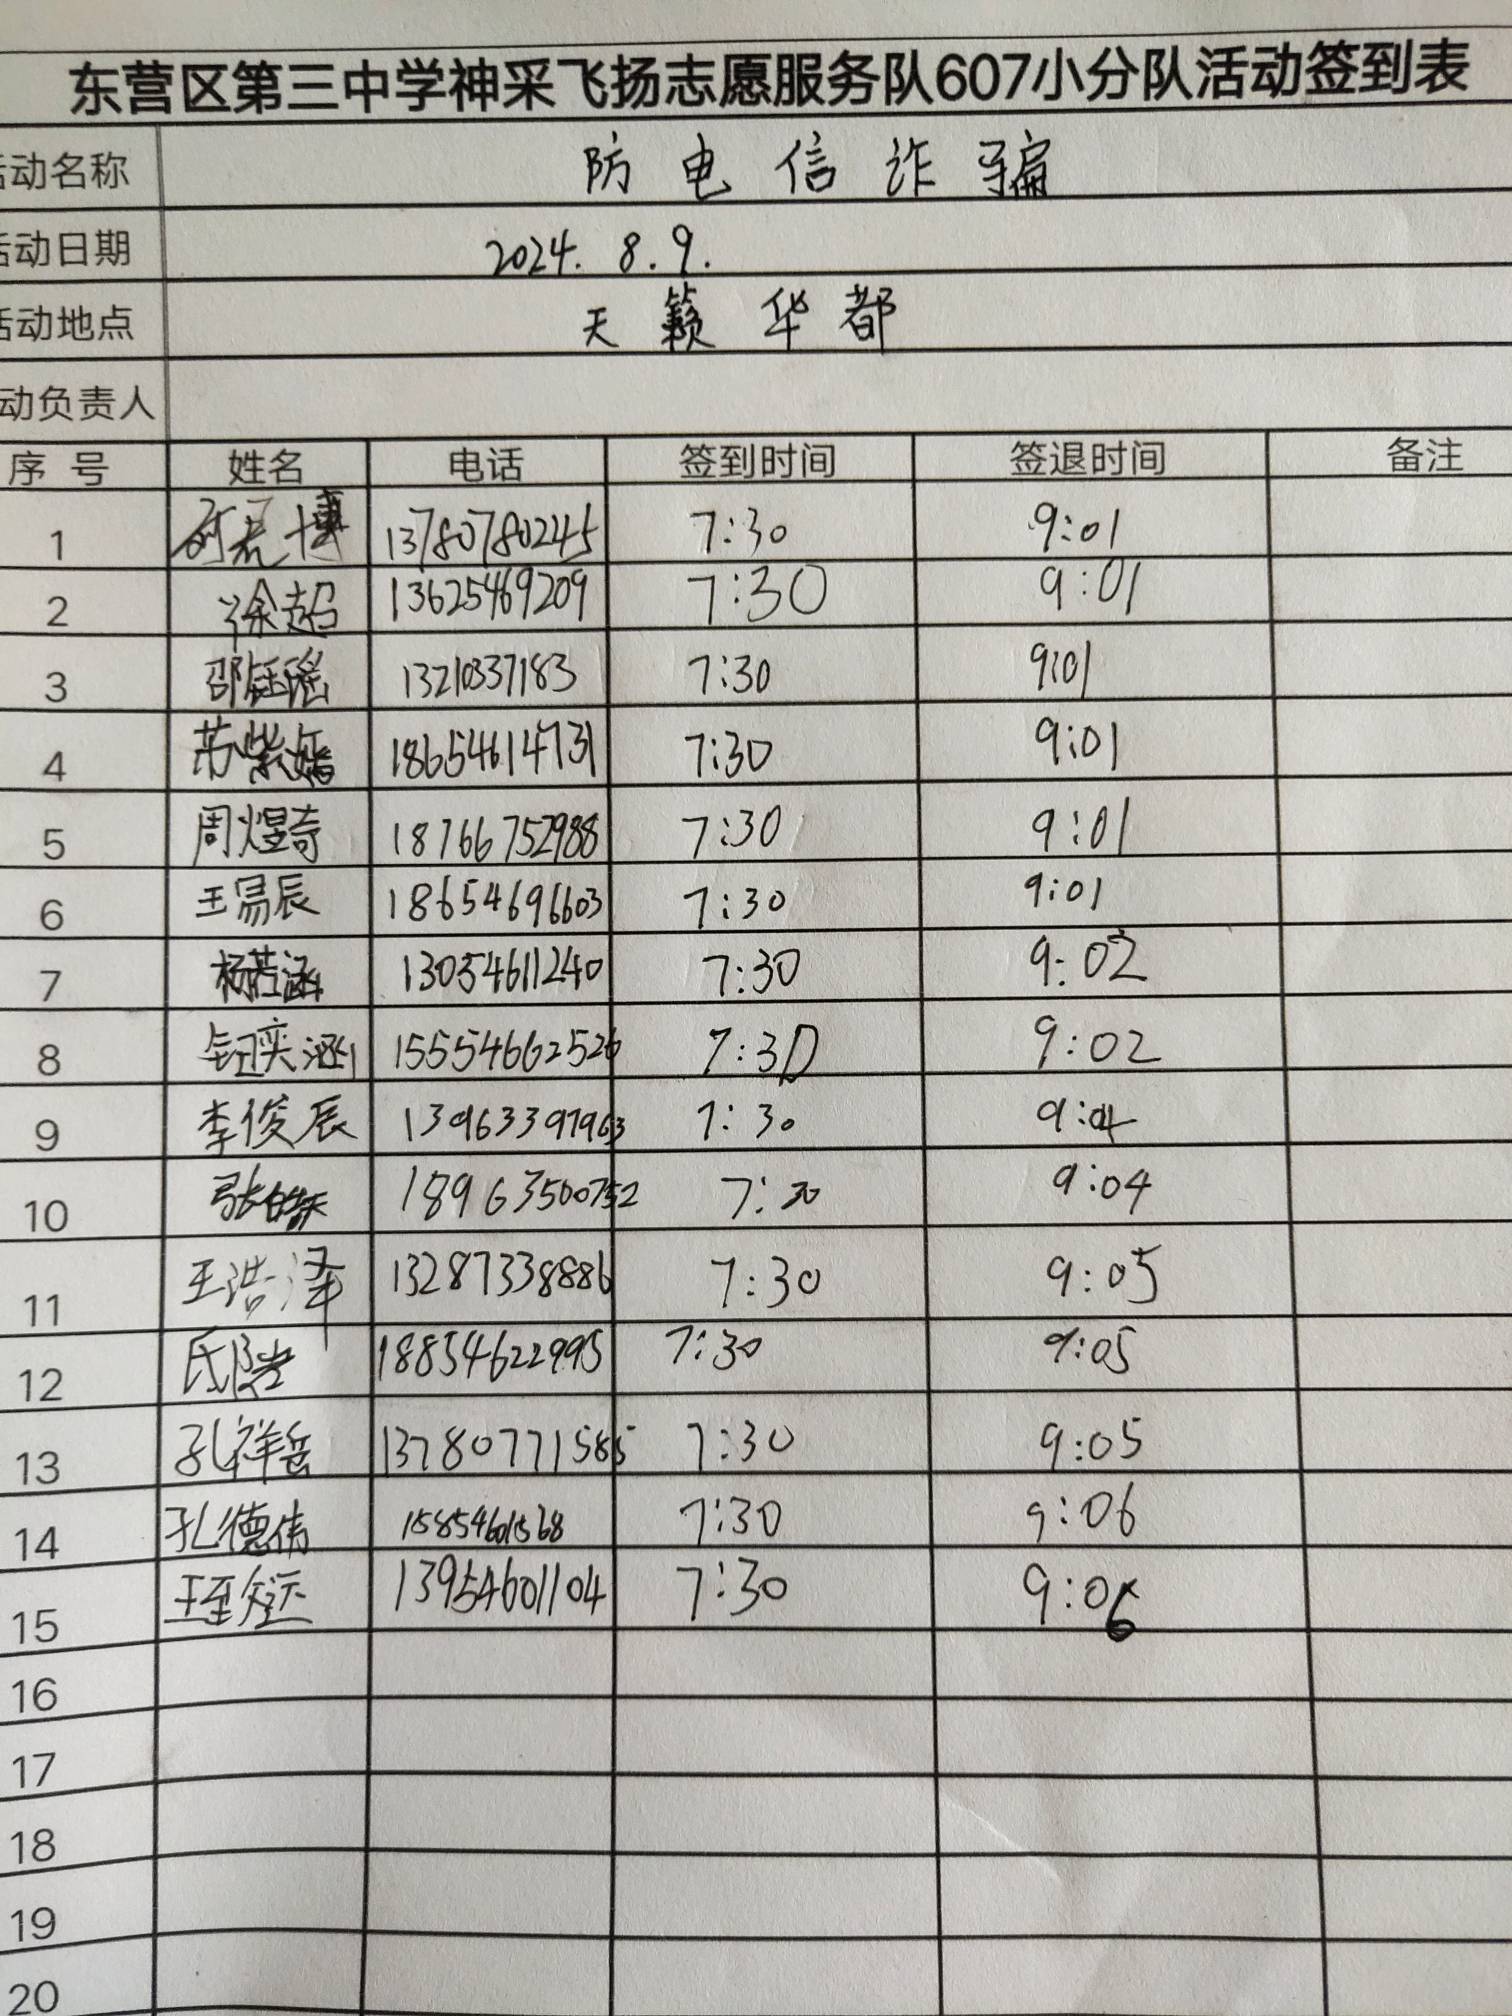 东营区第三中学神采飞扬志愿服务队607小分队活动签到表
活动名称 防电信诈骗
活动日期 2024.8.9.
活动地点 天籁华都
动负责人
序号 姓名 电话 签到时间 签退时间 备注
1 博 13780780245 7:30 9:01
2 徐超 13625469209 7:30 9:01
3 邵钰瑶 7:30 9:01
4 苏紫嫣 18654614731 7:30 9:01
5 周煜奇 18766752988 7:30 9:01
6 王易辰 18654696603 7:30 9:01
7 杨若涵 13054611240 7:30 9:02
8 钮奕涵 15554662526 7:30 9:02
9 李俊辰 13963397963 7:30 9:04
10 张皓天 18963500752 7:30 9:04
11 王浩泽 13287338886 7:30 9:05
12 18854622995 7:30 9:05
13 孔祥岳 13780771585 7:30 9:05
14 孔德伟 15854601568 7:30 9:06
15 13954601104 7:30 9:06
16
17
18
19
20